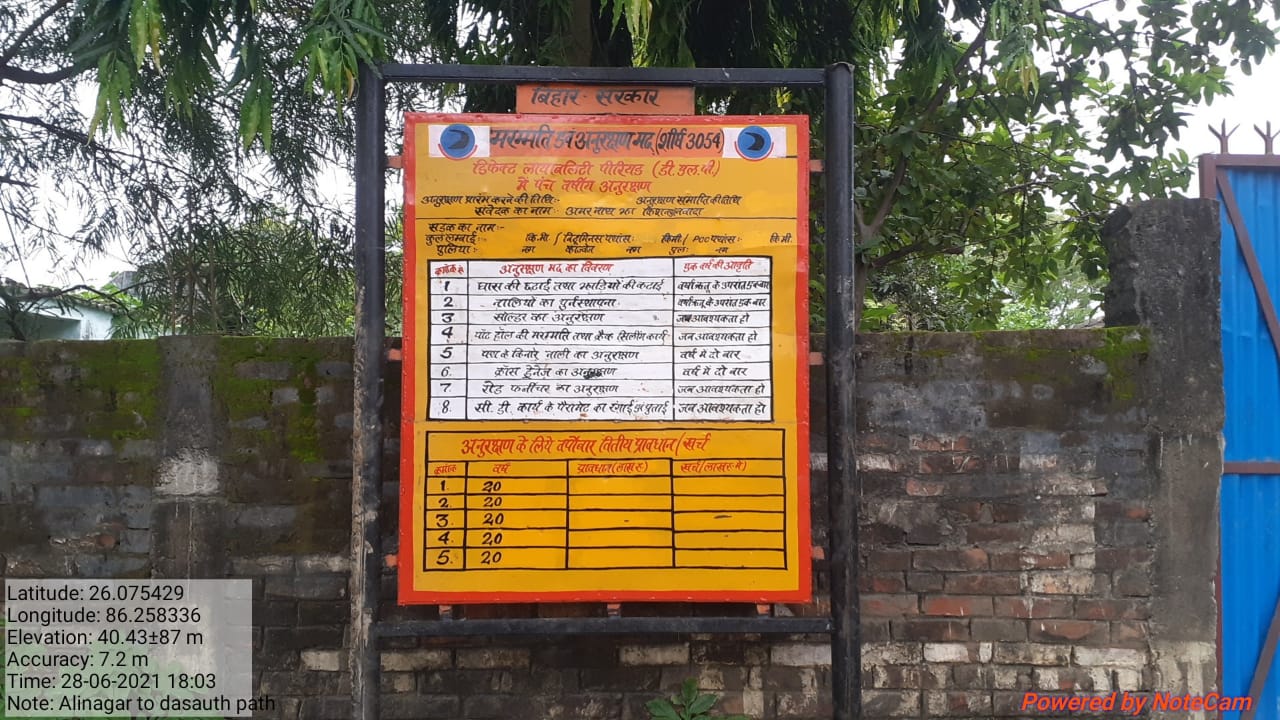 बिहार सरकार
मरम्मति एवं अनुरक्षण मद (शीर्ष 3054)
डिफेक्ट लायबलिटी पीरियड (डी.एल.पी.)
में पंच वर्षीय अनुरक्षण
अनुरक्षण प्रारंभ करने की तिथि:- अनुरक्षण समाप्ति की तिथि
संवेदक का नाम:- अमर नाथ झा
सड़क का नाम:-
कुल लम्बाई:- कि.मी./बिटुमिनस पथांस: कि.मी./PCC पथांस:- कि.मी.
पुलिया:- नग नग पुल:- नग
अनुरक्षण मद का विवरण एक वर्ष की आवृति
1 घास की छटाई तथा झाड़ियो की कटाई वर्षा ऋतु के उपरांत एक बार
2 नालियो का पुर्नस्थापना वर्षा ऋतु के उपरांत एक बार
3 सोल्डर का अनुरक्षण जब आवश्यकता हो
4 पॉट होल की मरम्मति तथा क्रैक सिलींग कार्य जब आवश्यकता हो
5 पथ के किनारे नाली का अनुरक्षण वर्ष में दो बार
6. क्रॉस ड्रेनेज का अनुरक्षण वर्ष में दो बार
7 रोड फर्नीचर का अनुरक्षण जब आवश्यकता हो
8. सी. डी. कार्य के पैरामेट का रंगाई पुताई जब आवश्यकता हो
अनुरक्षण के लिये वर्षोवार वित्तिय प्रावधान/खर्च
क्रमांक वर्ष प्रावधान (लाख रु.) खर्च (लाख रु. में)
1. 20
2. 20
3. 20
4. 20
5. 20
Latitude: 26.075429
Longitude: 86.258336
Elevation: 40.43±87 m
Accuracy: 7.2 m
Time: 28-06-2021 18:03
Note: Alinagar to dasauth path
Powered by NoteCam